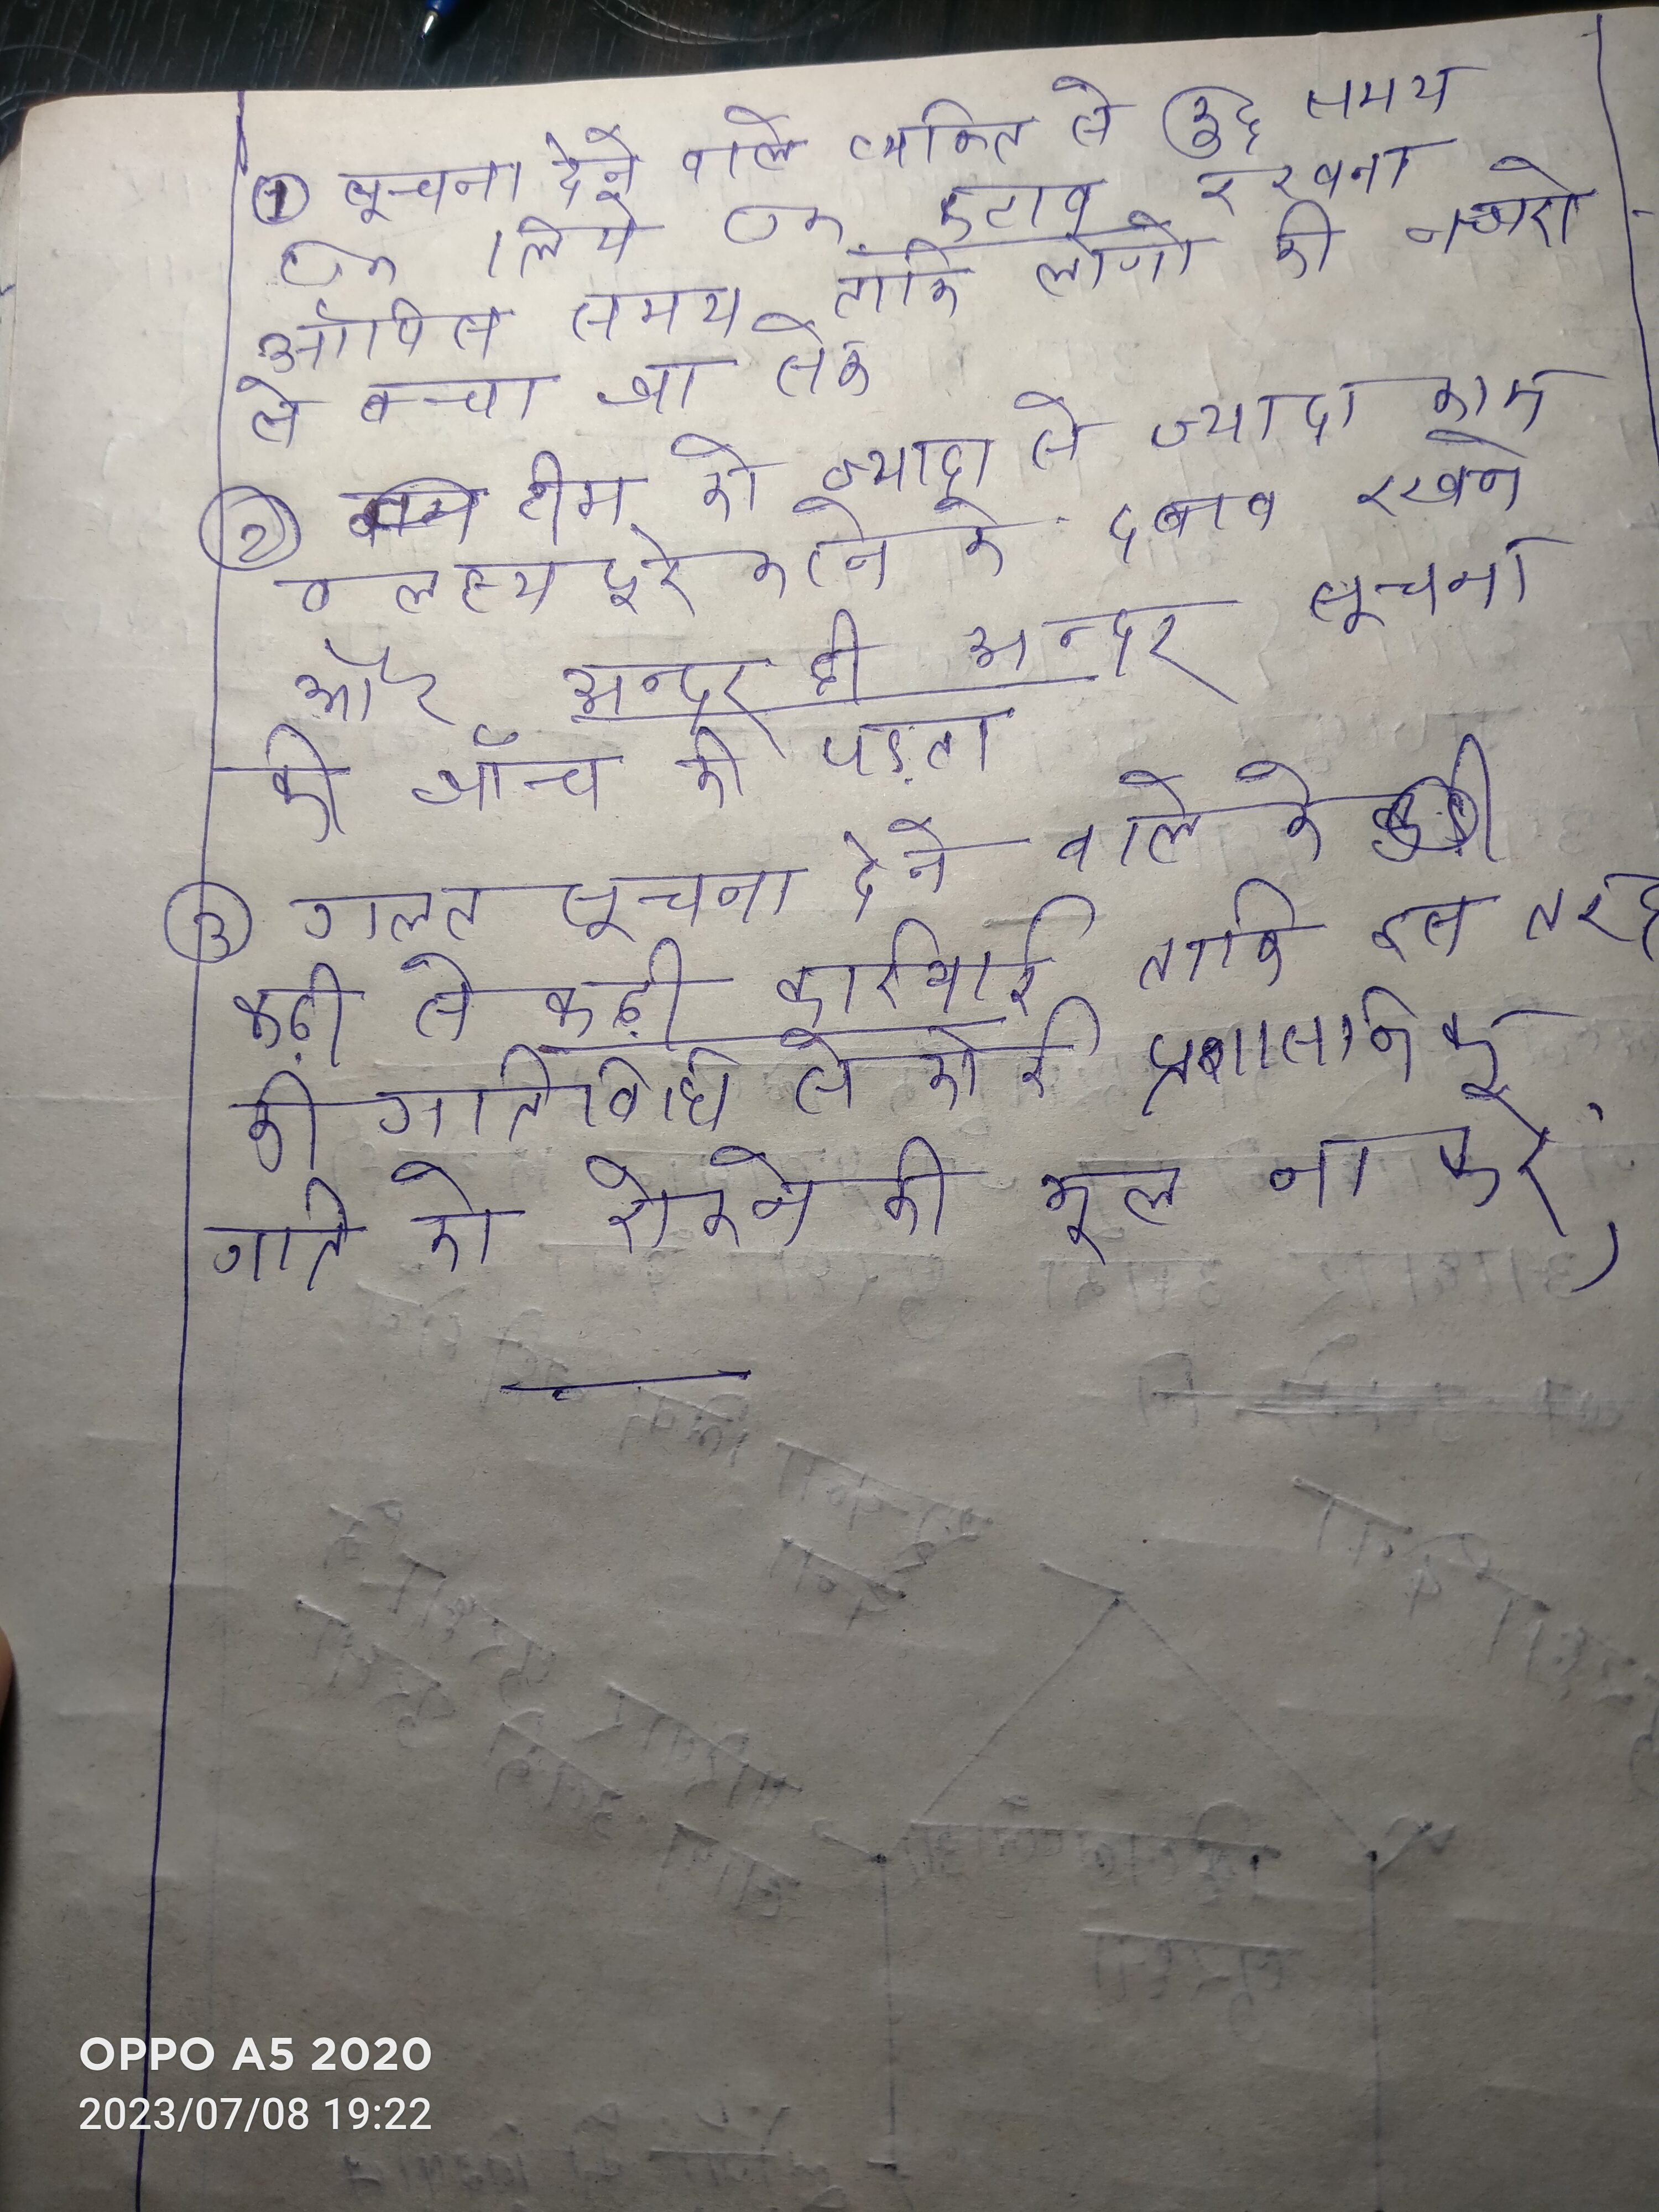 ① सूचना देने वाले व्यक्ति से कुछ समय
के लिये एक कटाव रखना
ऑफिस समय ताकि लोगो की नजरो
से बचा जा सके
② टीम को ज्यादा से ज्यादा काम
व लक्ष्य पूरे करने के दबाव रखने
और अन्दर ही अन्दर सूचना
की जाँच की पड़ता
③ गलत सूचना देने वाले के
कड़ी से कड़ी कार्रवाई ताकि इस तरह
की गतिविधि से कोई प्रशासनिक
गति को रोकने की भूल ना करे,
OPPO A5 2020
2023/07/08 19:22